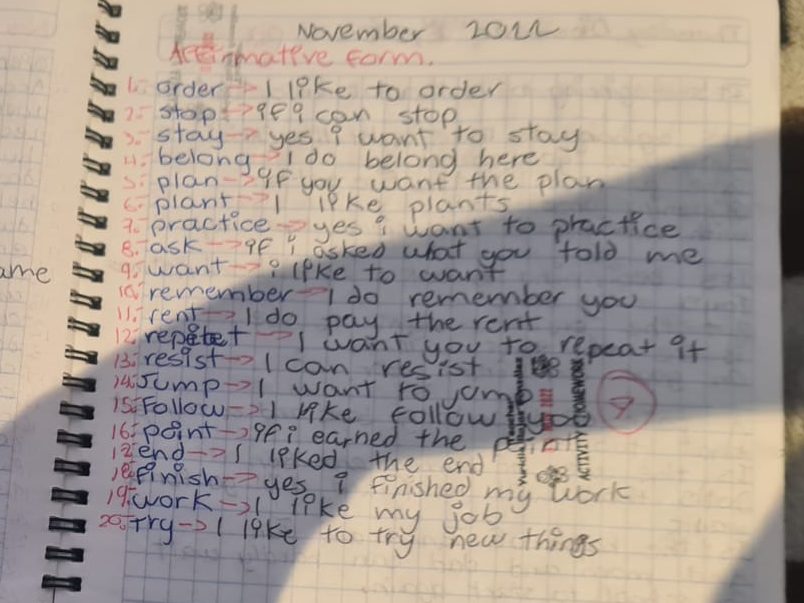 November 2022
Affirmative form.
1.- order -> I like to order
2.- stop -> if i can stop
3.- stay -> yes i want to stay
4.- belong -> I do belong here
5.- plan -> if you want the plan
6.- plant -> I like plants
7.- practice -> yes i want to practice
8.- ask -> if i asked what you told me
9.- want -> i like to want
10.- remember -> I do remember you
11.- rent -> I do pay the rent
12.- repetet -> I want you to repeat it
13.- resist -> I can resist
14.- Jump -> I want to
15.- Follow -> I like follow
16.- point -> if i earned the point
17.- end -> I liked the end
18.- finish -> yes i finished my work
19.- work -> I like my job
20.- try -> I like to try new things
2022
ACTIVITY HOMEWORK
ame